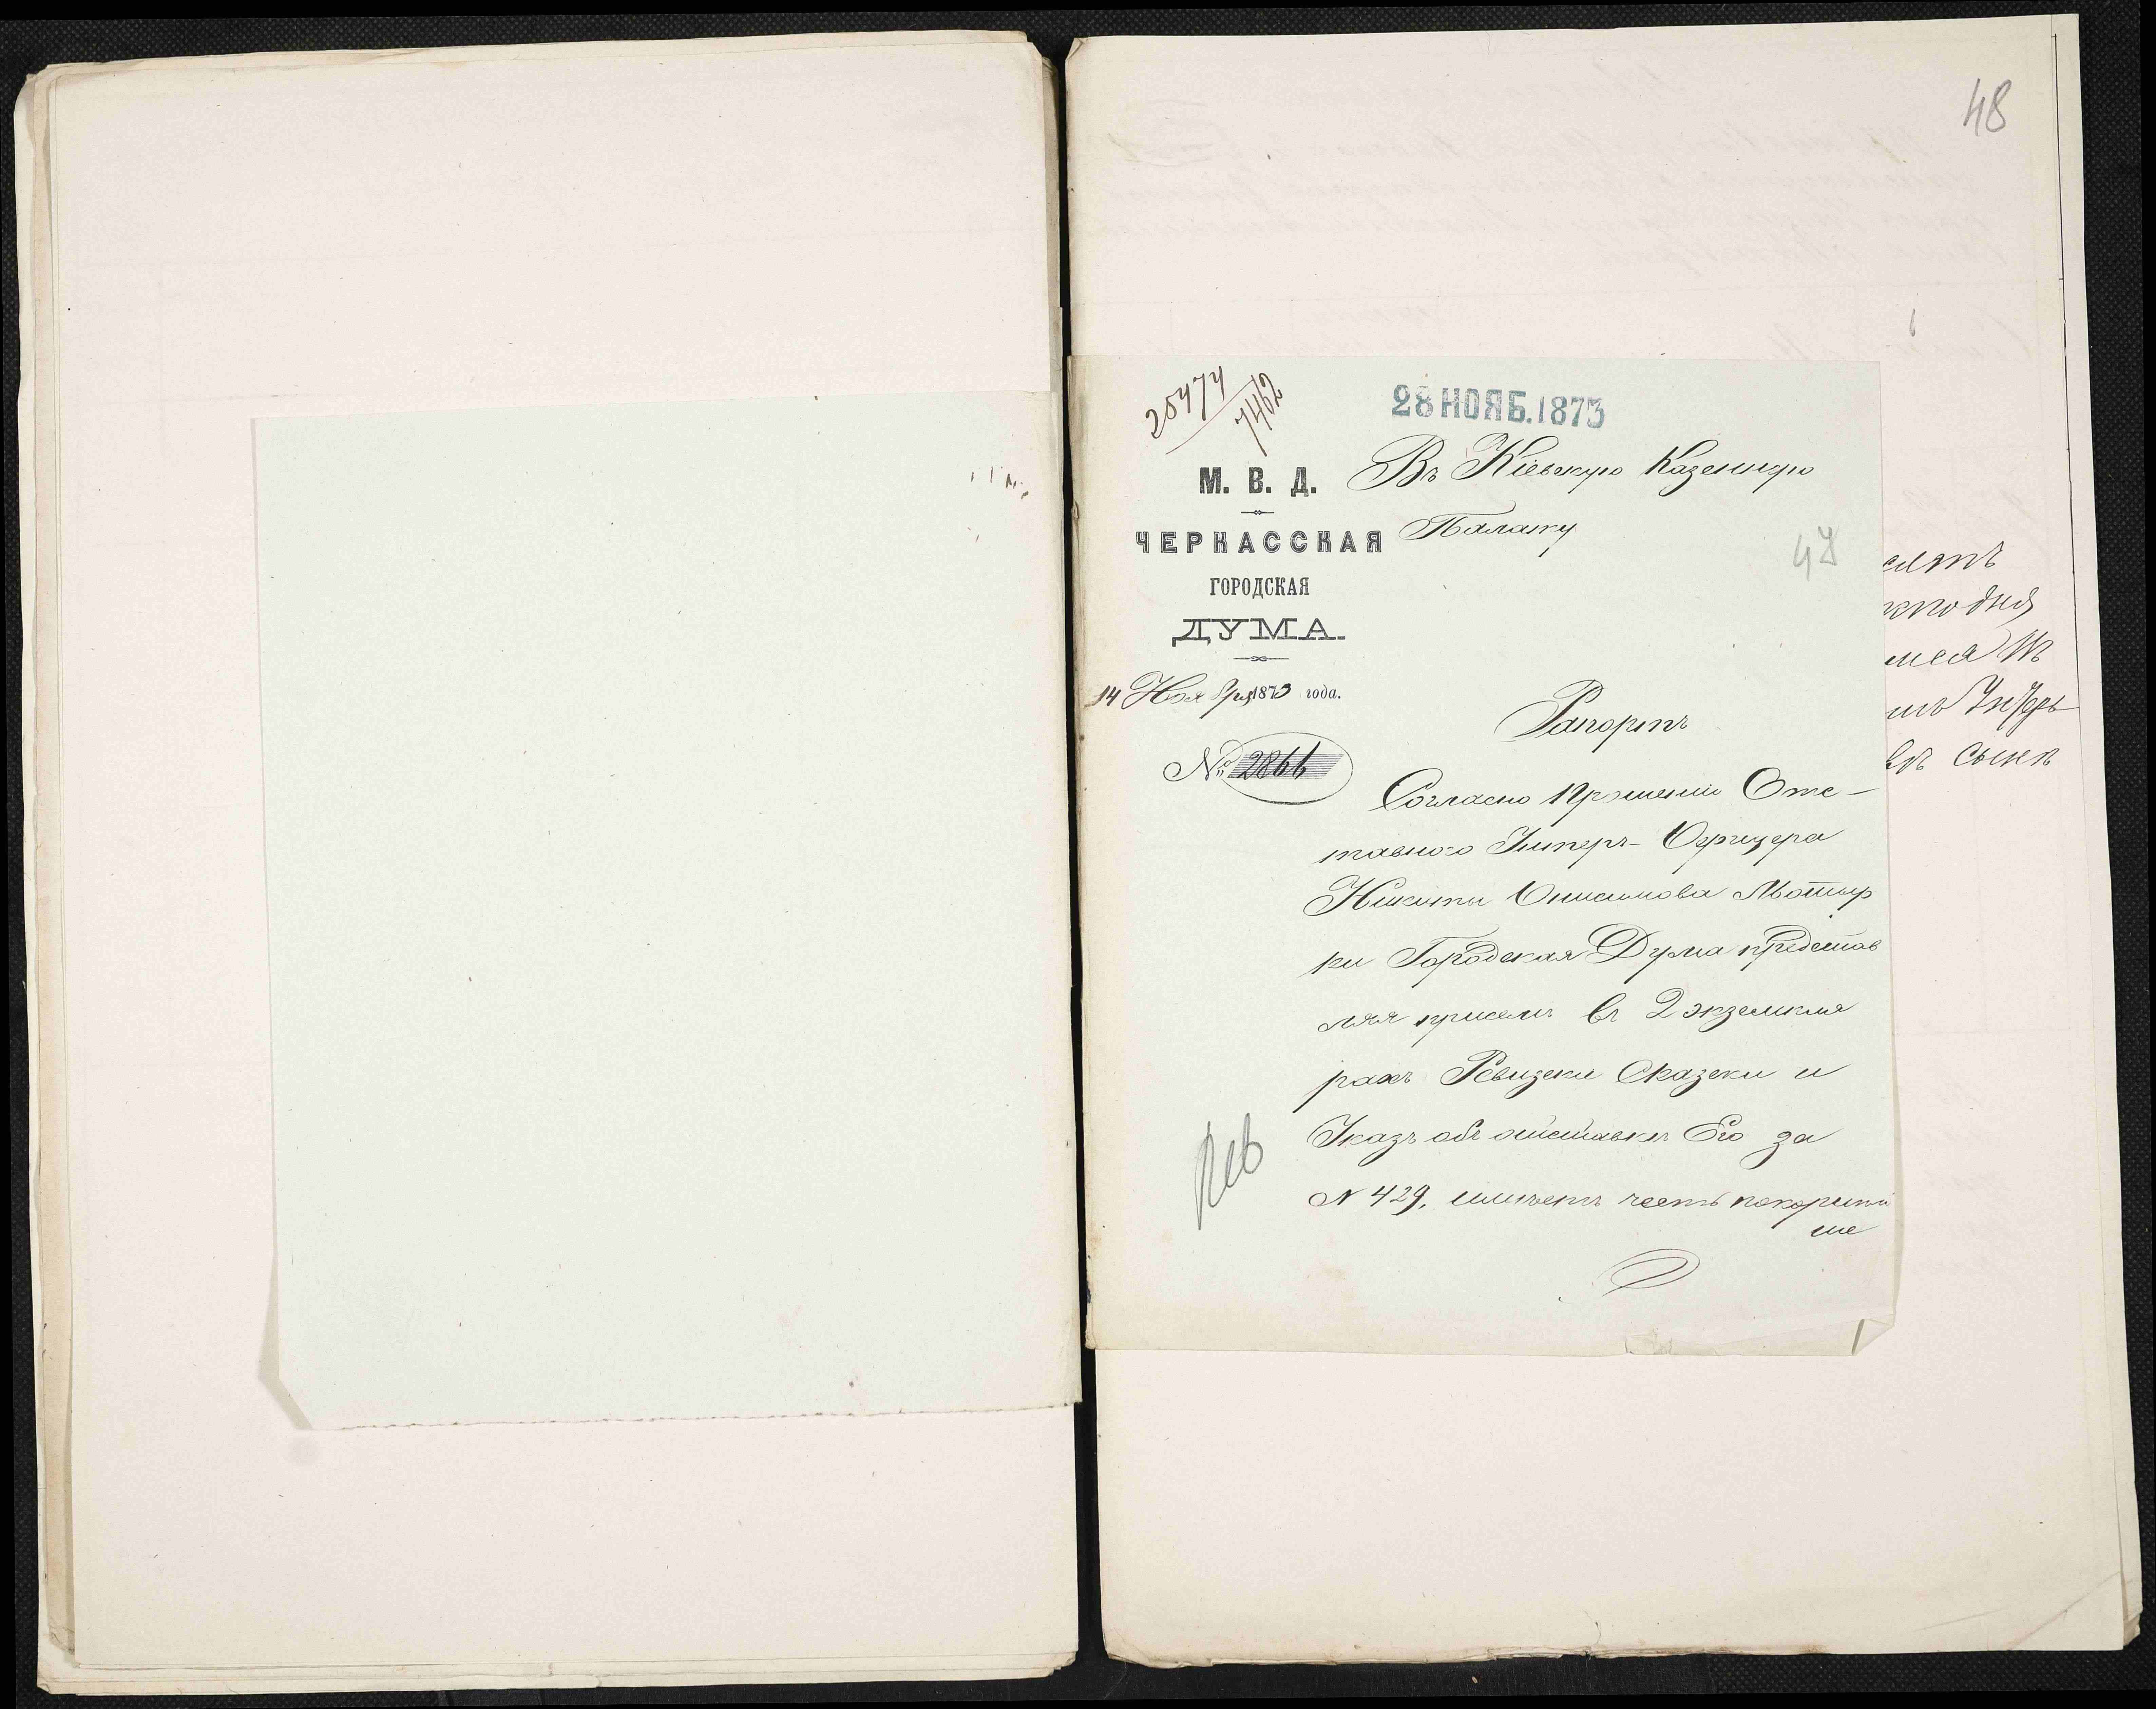 48
25474
7462
28 НОЯБ.1873
М. В. Д.
ЧЕРКАССКАЯ
ГОРОДСКАЯ
ДУМА.
14 Ноября 1873 года.
№ 2866
Въ Кіевскую Казенную
Палату
47
Рапортъ
Согласно Прошенію Отс-
тавного Унтеръ-Офицера
Никиты Онисимова
ки Городская Дума представ
ляя присемъ въ 2 экземпля
рахъ Ревизскія Сказски и
Указъ объ отставкѣ Его за
N 429, имѣетъ честь покорнѣй
ше
Рев
Унтеръ
сынъ